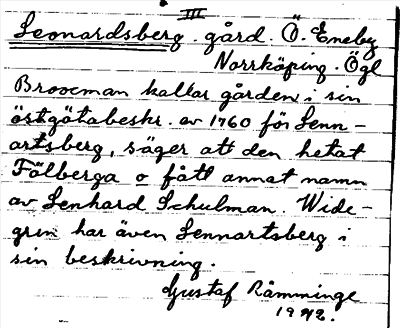 III
Leonardsberg. gård. Ö. Eneby
Norrköping. Ögl
Broocman kallar gården i sin
östgötabeskr. av 1760 för Lenn-
artsberg, säger att den hetat
Fölberga o fått annat namn
av Lenhard Schulman. Wide-
gren har även Lennartsberg i
sin beskrivning.
Gustaf Råmminge
1942.